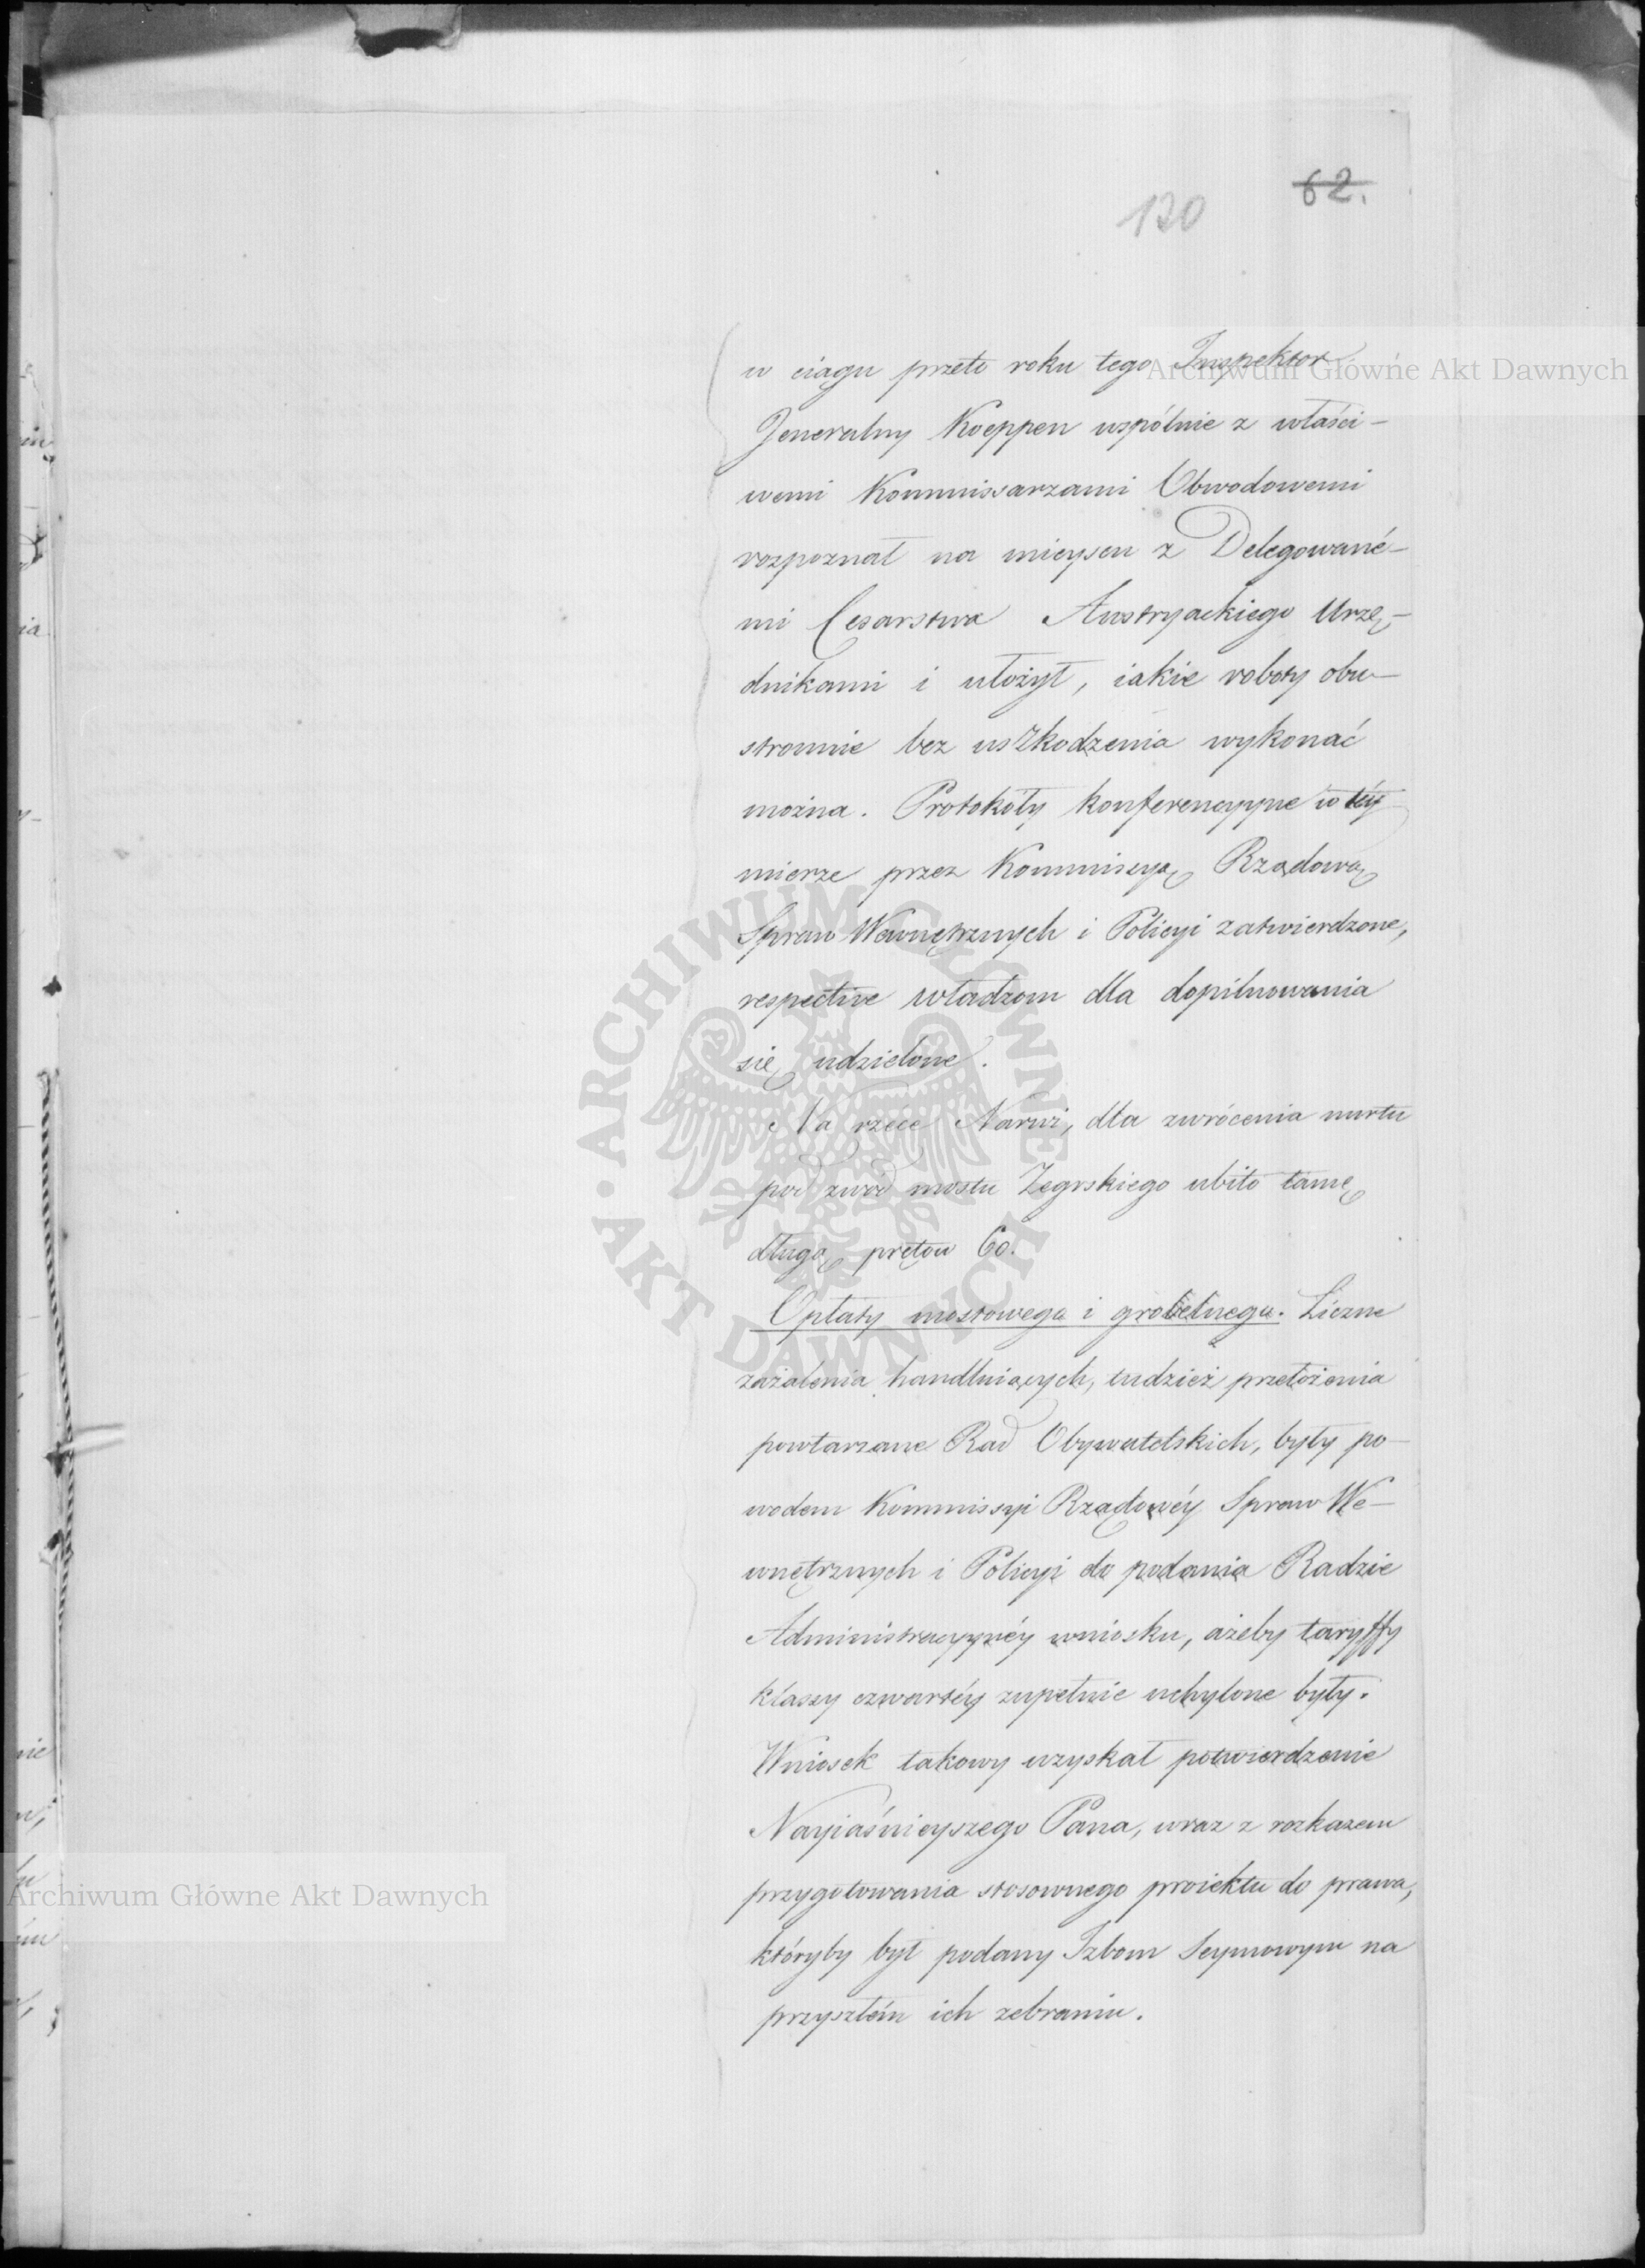 62.
120
w ciągu przeto roku tego Inspektor
Jeneralny Koeppen wspólnie z właści-
wemi Kommissarzami Obwodowemi
rozpoznał na mieyscu z Delegowané-
mi Cesarstwa Austryackiego Urzę-
dnikami i ułożył, iakie roboty obu-
stronnie bez uszkodzenia wykonać
można. Protokóły konferencyyne w téy
mierze przez Kommissyą Rządową
Spraw Wewnętrznych i Policyi zatwierdzone,
respective władzom dla dopilnowania
się udzielone.
Na rzece Narwi, dla zwrócenia nurtu
pod zwód mostu Zegrskiego ubito tamę
długą prętów 60.
Opłaty mostowego i grobelnego. Liczne
zażalenia handluiących, tudzież przełożenia
powtarzane Rad Obywatelskich, były po-
wodem Kommissyi Rządowéy Spraw We-
wnętrznych i Policyi do podania Radzie
Administracyynéy wniosku, ażeby taryffy
klassy czwartéy zupełnie uchylone były.
Wniosek takowy uzyskał potwierdzenie
Nayiaśnieyszego Pana, wraz z rozkazem
przygotowania stosownego proiektu do prawa,
któryby był podany Izbom Seymowym na
przyszłém ich zebraniu.
Archiwum Główne Akt Dawnych
Archiwum Główne Akt Dawnych
ARCHIWUM GŁÓWNE AKT DAWNYCH